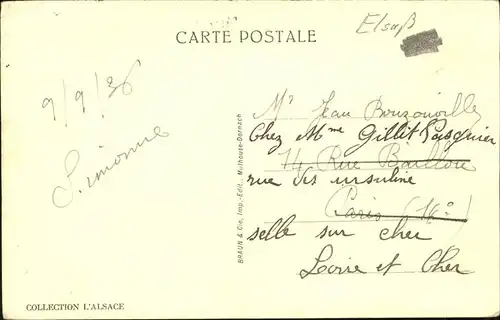 CARTE POSTALE
Elsaß
9/9/36
Simonne
Mr Jean Bouzonville
Chez Mme Gillit Pasquier
14 Rue Baillou
rue des ursuline
Paris (14e)
selle sur cher
Loire et Cher
BRAUN & Cie, Imp.-Edit., Mulhouse-Dornach
COLLECTION L'ALSACE